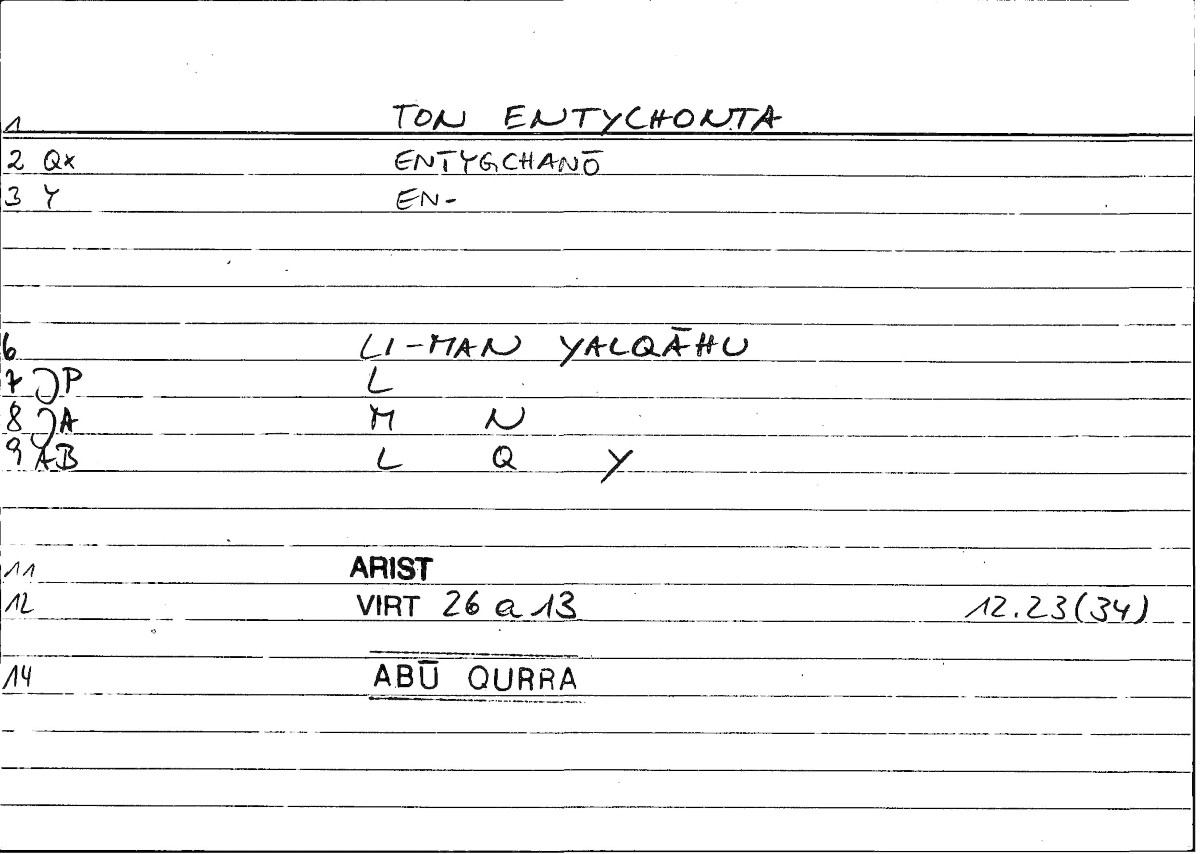 1 TON ENTYCHONTA
2 Qx ENTYGCHANŌ
3 Y EN-
6 LI-MAN YALQĀHU
7 P L
8 A M N
9 AB L Q Y
11 ARIST
12 VIRT 26 a 13 12.23(34)
14 ABŪ QURRA